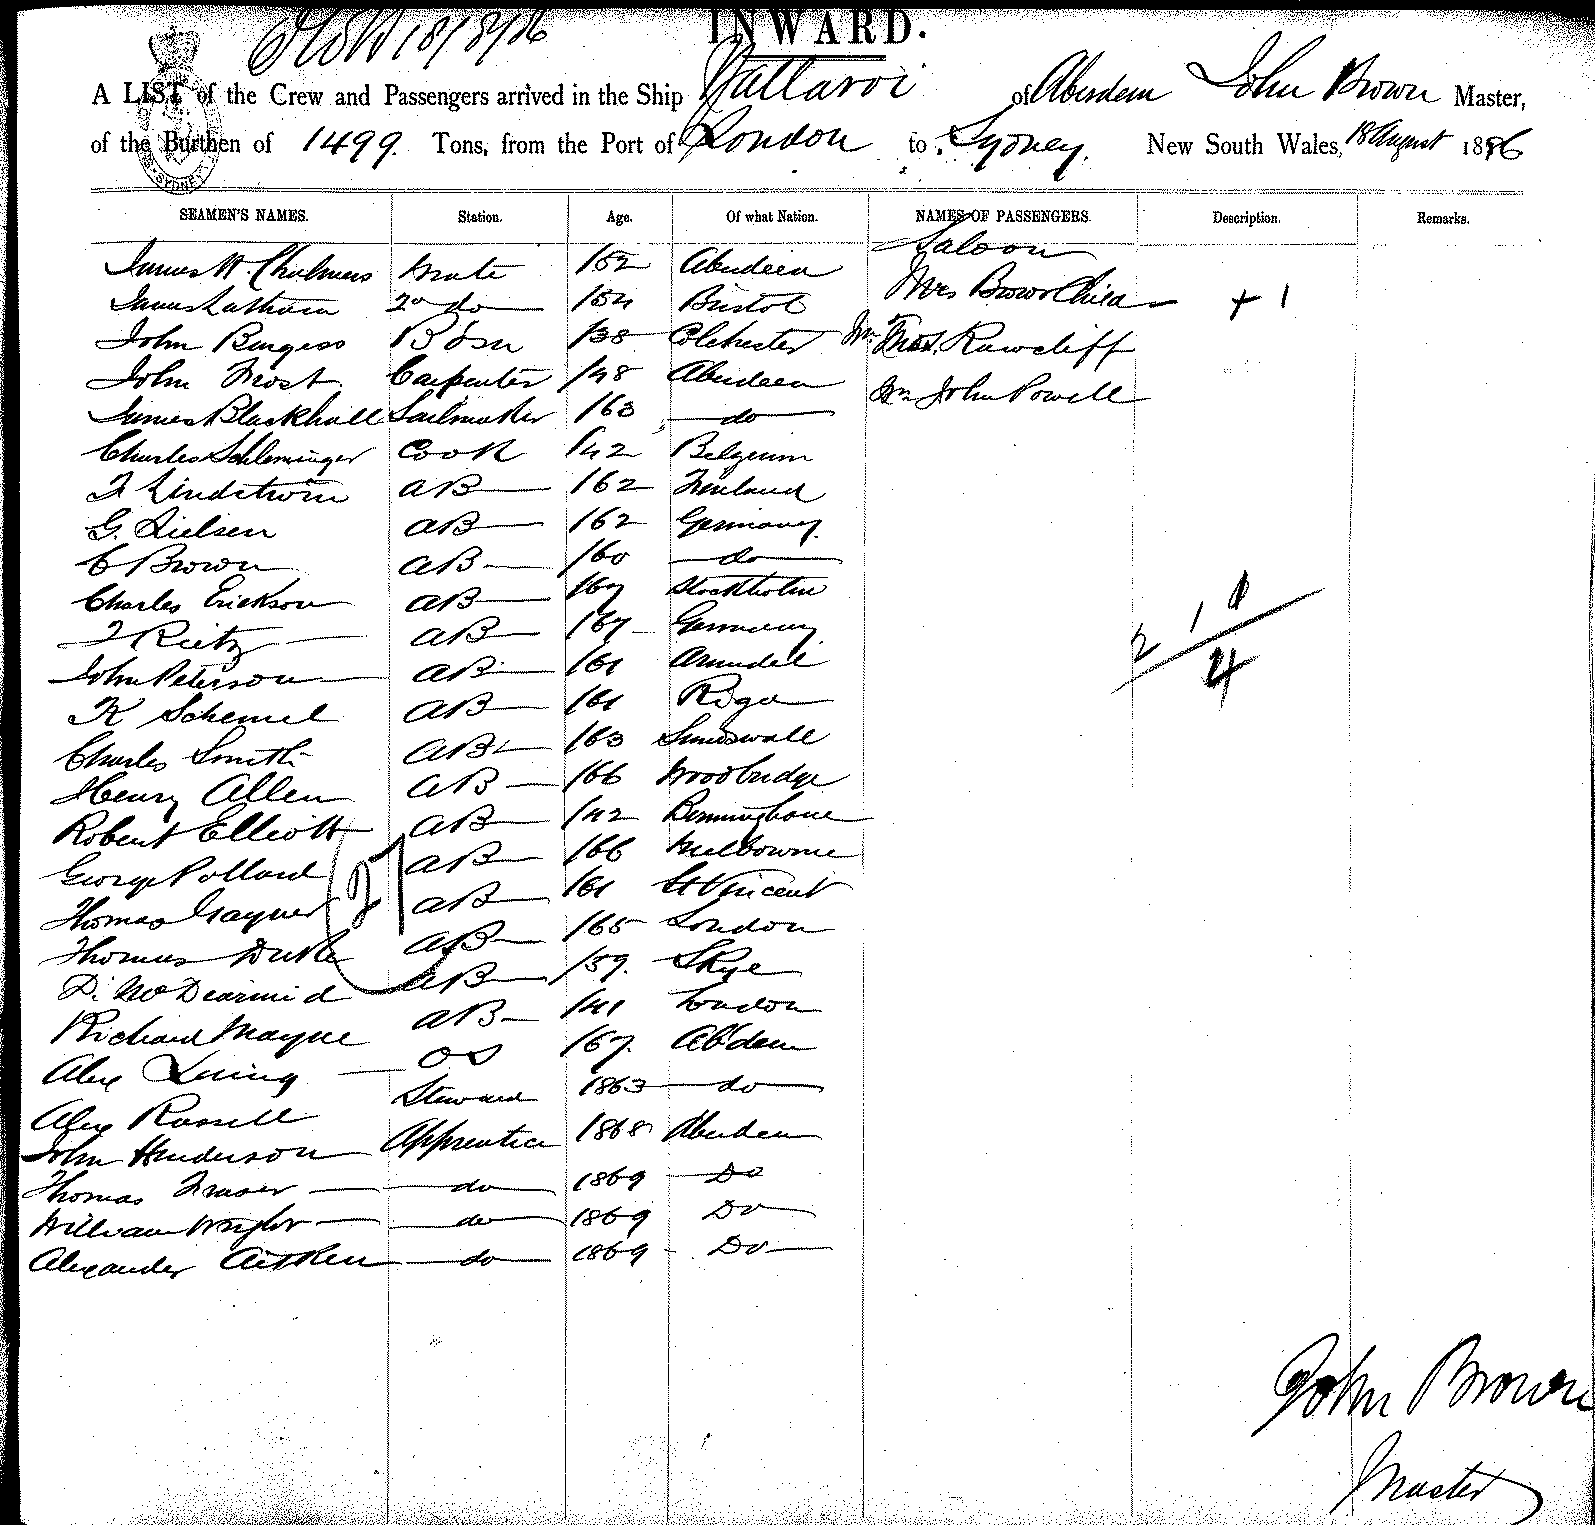 18/8/86
INWARD.
A LIST of the Crew and Passengers arrived in the Ship Wallaroi of Aberdeen John Brown Master,
of the Burthen of 1499 Tons, from the Port of London to Sydney. New South Wales, 18 August 1886
SYDNEY
SEAMEN'S NAMES. Station. Age. Of what Nation. NAMES OF PASSENGERS. Description. Remarks.
Saloon
James W. Chalmers Mate /52 Aberdeen
James Latham 2nd do /54 Bristol Mrs Brown Child + 1
John Burgess Bosn /38 Colchester Mr Thos. Rawcliff
John Frost Carpenter /48 Aberdeen Mr John Powell
James Blackhall Sailmaker /63 do
Charles Schleminger Cook /42 Belgium
F Lindstrom AB /62 Finland
G. Nielsen AB /62 Germany
C Brown AB /60 do
Charles Erickson AB /67 Stockholm
F Reitz AB /67 Germany
John Peterson AB /61 Arundel
K Schemel AB /61 Riga
Charles Smith AB /63 Sundswall
Henry Allen AB /66 Woodbridge
Robert Elliott AB /42 Birmingham
George Pollard AB /66 Melbourne
Thomas Gayner AB /61 St Vincent
Thomas Duke AB /65 London
D. McDearmid AB /59. Skye
Richard Mayne AB /41 London
Alex Laing OS /67. Abdeen
Alex Russell Steward 1863 do
John Henderson Apprentice 1868 Aberdeen
Thomas Fraser do 1869 Do
William Wright do 1869 Do
Alexander Aitken do 1869 Do
27
2 1 1
4
John Brown
Master